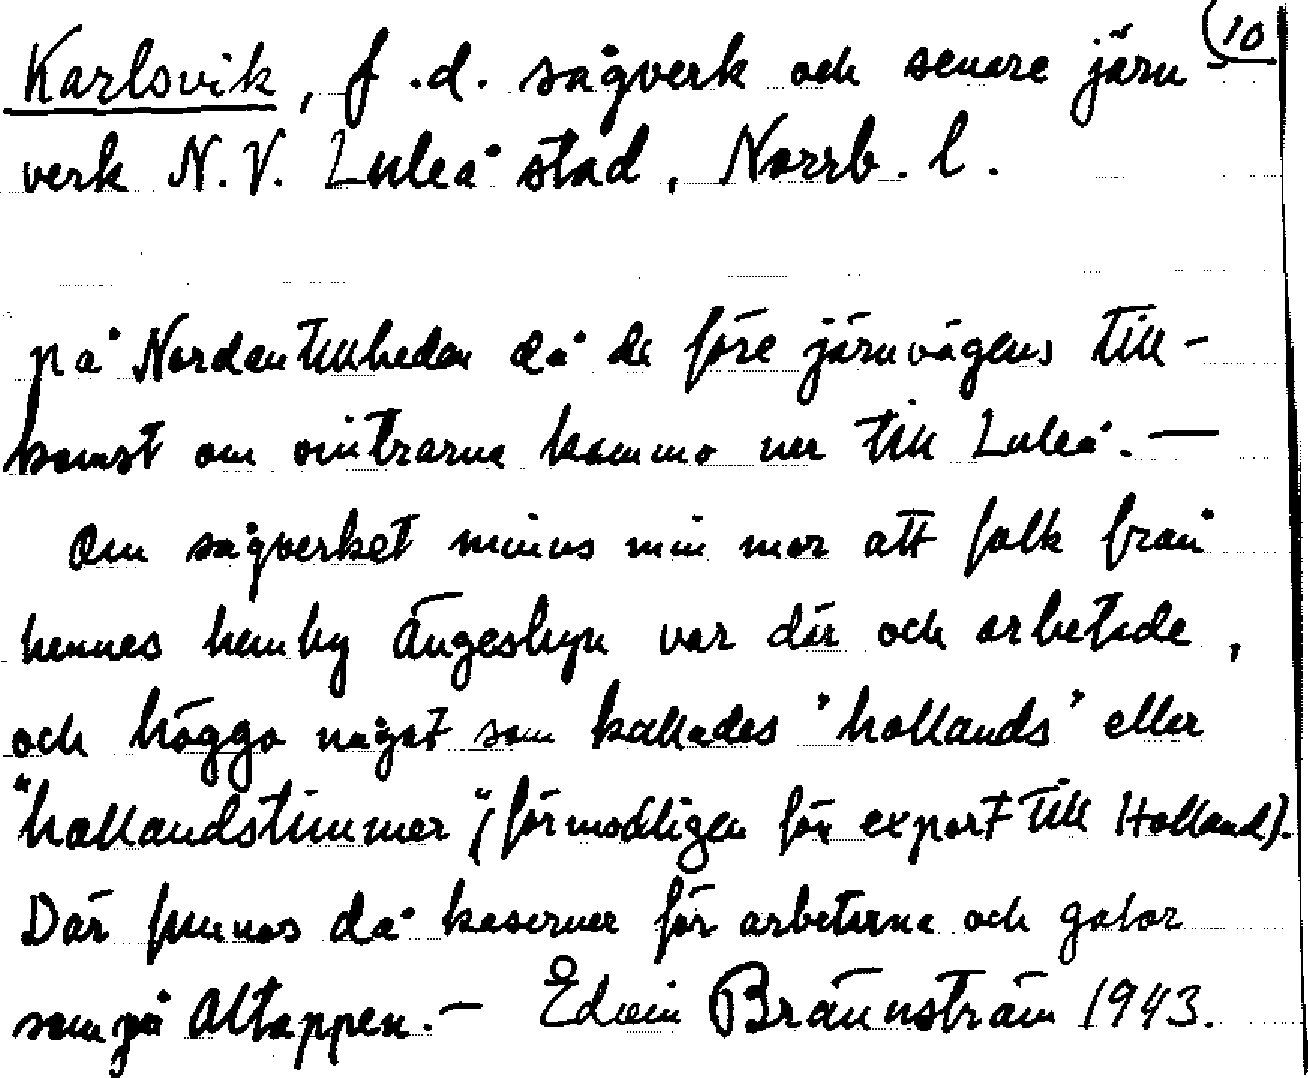 10
Karlsvik, f.d. sågverk och senare järn-
verk N.V. Luleå stad, Norrb. l.
på Nordantillheden då de före järnvägens till-
komst om vintrarna kommo ner till Luleå. —
Om sågverket minns min mor att folk från
hennes hemby Ängesbyn var där och arbetade,
och höggo något som kallades "hollands" eller
"hollandstimmer" (förmodligen för export till Holland).
Där funnos då kaserner för arbetarna och gator
som på Altappen. — Edvin Brännström 1943.